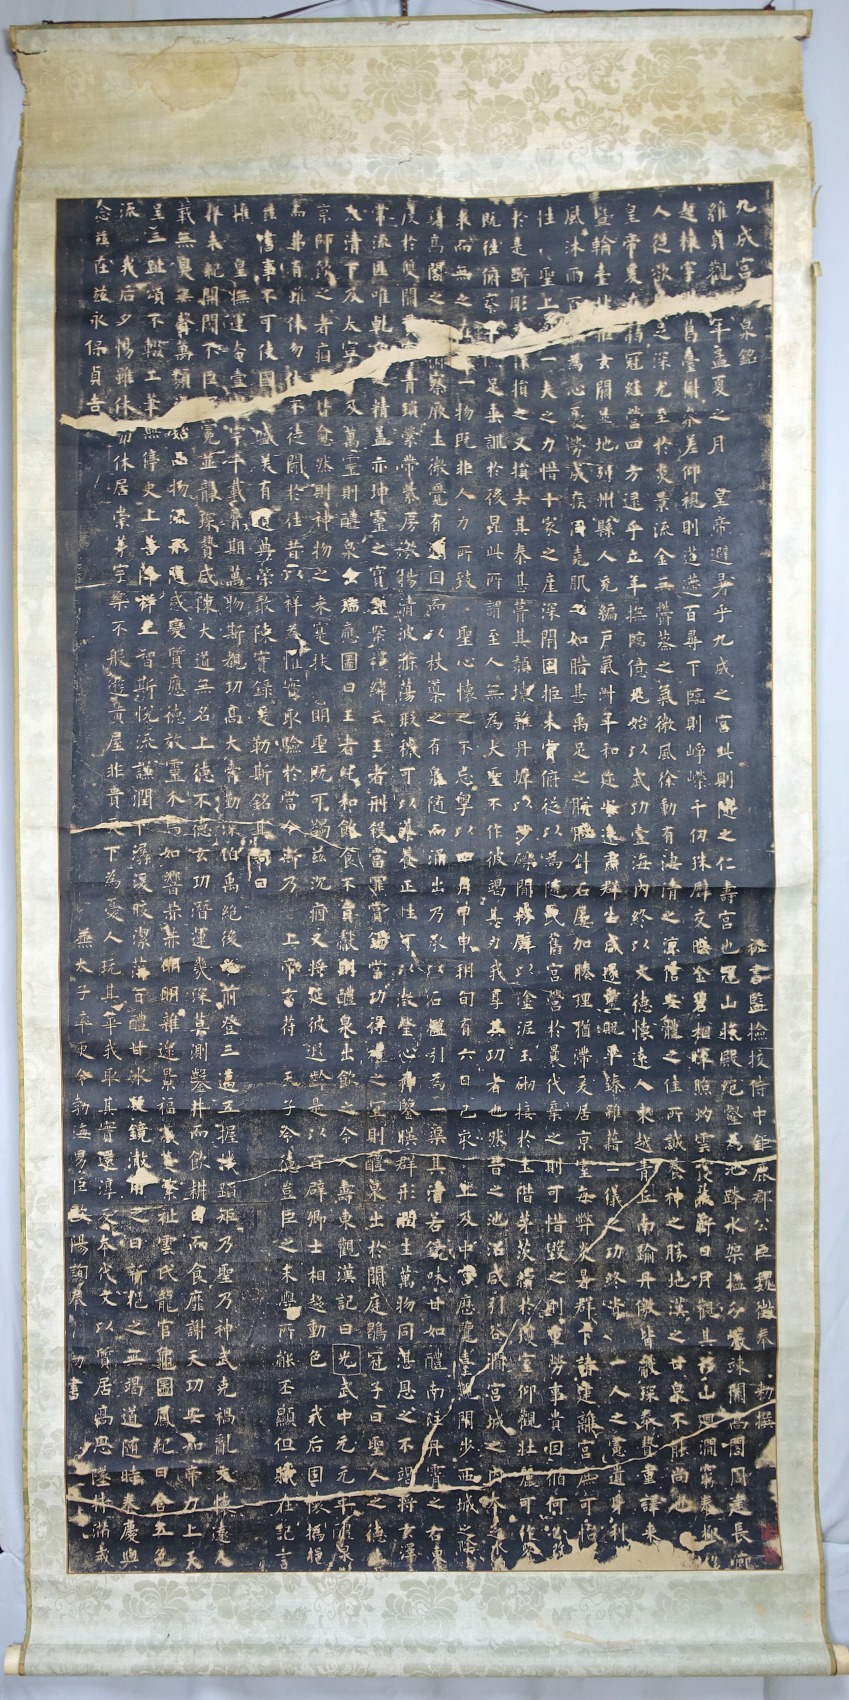 九成宮 泉銘 秘書監檢挍侍中鉅鹿郡公臣魏徵奉 勑撰
維貞觀 年孟夏之月 皇帝避暑乎九成之宮此則隨之仁壽宮也冠山抗殿絕壑為池跨水架楹分巖竦闕高閣周建長廊
起棟宇 葛臺榭參差仰視則迢遰百尋下臨則崢嶸千仞珠璧交暎金碧相暉照灼雲霞蔽虧日月觀其移山迴澗窮泰極
人從欲 足深尤至於炎景流金無鬱蒸之氣微風徐動有淒清之涼信安體之佳所誠養神之勝地漢之甘泉不能尚也
皇帝爰在弱冠經營四方逮乎立年撫臨億兆始以武功壹海內終以文德懷遠人東越青丘南踰丹徼皆獻琛奉贄重譯來
暨輪臺北 玄闕並地列州縣人充編戶氣淑年和迩安遠肅群生咸遂靈貺畢臻雖藉二儀之功終資一人之慮遺身利
風沐雨百 為心憂勞成疾同堯肌之如腊甚禹足之胼胝針石屢加腠理猶滯爰居京室每弊炎暑群下請建離宮庶可怡
性 聖上 一夫之力惜十家之產深閉固拒未肯俯從以為隨氏舊宮營於曩代棄之則可惜毀之則重勞事貴因循何必改
於是斲彫 損之又損去其泰甚葺其頹壞雜丹墀以沙礫間粉壁以塗泥玉砌接於土階茅茨續於瓊室仰觀壯麗可作鑒
既往俯察 足垂訓於後昆此所謂至人無為大聖不作彼竭其力我享其功者也然昔之池沼咸引谷澗宮城之內本乏水
求而無之 一物既非人力所致 聖心懷之不忘粵以四月甲申朔旬有六日己亥 上及中宮歷覽臺觀閑步西城之陰
躊高閣之 察厥土微覺有潤因而以杖導之有泉隨而涌出乃承以石檻引為一渠其清若鏡味甘如醴南注丹霄之右東
度於雙闕 青瑣縈帶紫房激揚清波滌蕩瑕穢可以導養正性可以澂瑩心神鑒暎群形潤生萬物同湛恩之不竭將玄澤
常流匪唯乾 之精蓋亦坤靈之寶謹案禮緯云王者刑殺當罪賞錫當功得禮之宜則醴泉出於闕庭鶡冠子曰聖人之德
太清下及太寧 及萬靈則醴泉出瑞應圖曰王者純和飲食不貢獻則醴泉出飲之令人壽東觀漢記曰光武中元元年醴泉
京師飲之者痼 皆愈然則神物之來寔扶 明聖既可蠲茲沉痼又將延彼遐齡是以百辟卿士相趨動色 我后固懷撝挹
而弗有雖休勿休不徒聞於往昔以祥為懼實取驗於當今斯乃 上帝玄符 天子令德豈臣之末學所能丕顯但職在記言
茲書事不可使國 盛美有遺典策敢陳實錄爰勒斯銘其詞曰
惟 皇撫運奄壹寰宇千載膺期萬物斯覩功高大舜勤深伯禹絕後光前登三邁五握機蹈矩乃聖乃神武克禍亂文懷遠人
未紀開闢不臣冠冕並襲琛贄咸陳大道無名上德不德玄功潛運幾深莫測鑿井而飲耕田而食靡謝天功安知帝力上天
載無臭無聲萬類資始品物流形隨感變質應德效靈介焉如響赫赫明明雜遝景福葳蕤繁祉雲氏龍官龜圖鳳紀日含五色
呈三趾頌不輟工筆無停史上善降祥上智斯悅流謙潤下潺湲皎潔萍旨醴甘冰凝鏡澈用之日新挹之無竭道隨時泰慶與
流 我后夕惕雖休弗休居崇茅宇樂不般遊黃屋非貴天下為憂人玩其華我取其實還淳反本代文以質居高思墜持滿戒
念茲在茲永保貞吉 兼太子率更令勃海男臣歐陽詢奉 勑書